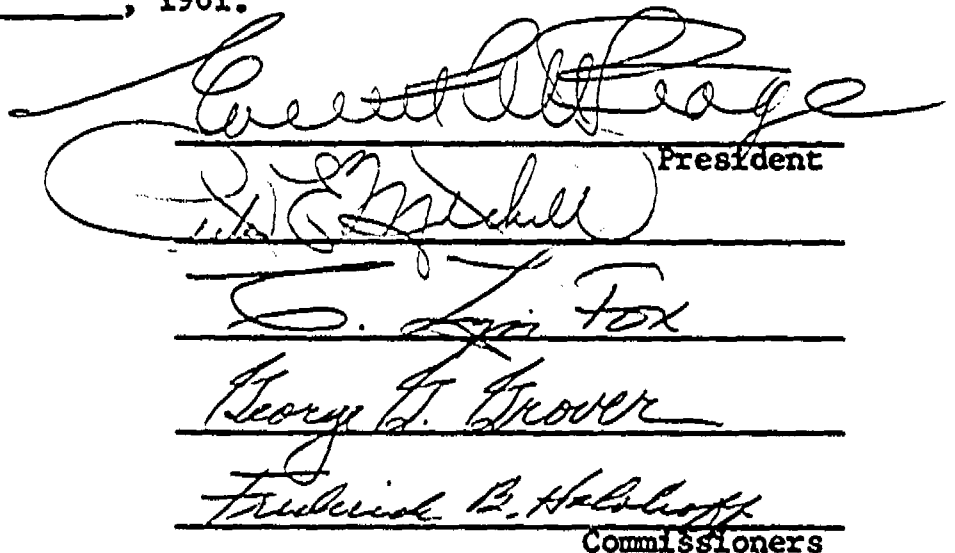 , 1961.
Everett C. McKeage
President
Peter E. Mitchell
C. Lyn Fox
George G. Grover
Frederick B. Holoboff
Commissioners